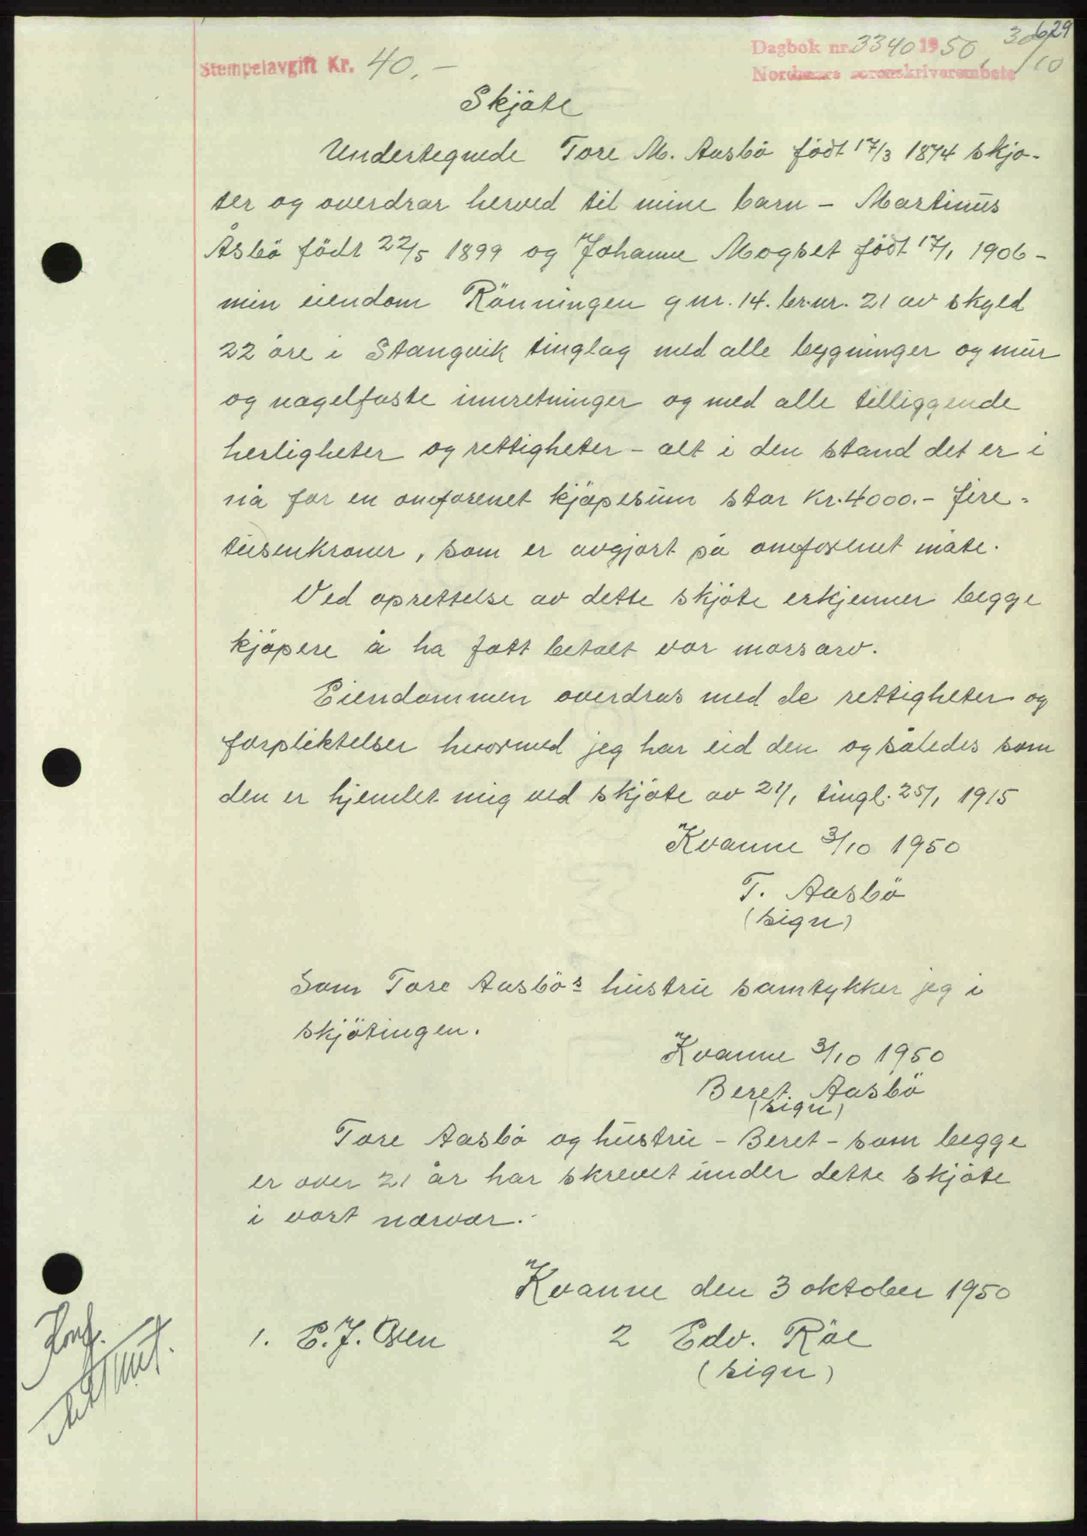 629
Stempelavgift Kr. 40.-
Dagbok nr. 3340 1950, 30/10
Nordmøre sorenskriverembete
Skjöte
Undertegnede Tore M. Aasbö födt 17/3 1874 skjö-
ter og overdrar herved til mine barn - Martinus
Åsbö födt 22/5 1899 og Johanne Mogset födt 17/1 1906 -
min eiendom Rönningen gnr. 14. br.nr. 21 av skyld
22 öre i Stangvik tinglag med alle bygninger og mur
og nagelfaste innretninger og med alle tilliggende
herligheter og rettigheter - alt i den stand det er i
nå for en omforenet kjöpesum stor Kr. 4000.- fire-
tusenkroner, som er avgjort på omforenet måte.
Ved oprettelse av dette skjöte erkjenner begge
kjöpere å ha fått betalt vor morsarv.
Eiendommen overdras med de rettigheter og
forpliktelser hvormed jeg har eid den og således som
den er hjemlet mig ved skjöte av 21/1 tingl. 25/1 1915
Kvanne 3/10 1950
T. Aasbö
(sign)
Som Tore Aasbö's hustru samtykker jeg i
skjötingen.
Kvanne 3/10 1950
Beret Aasbö
(sign)
Tore Aasbö og hustru - Beret - som begge
er over 21 år har skrevet under dette skjöte
i vort nærvær.-
Kvanne den 3 oktober 1950
1. E. J. Øien 2 Edv. Röe
(sign)
Konf.